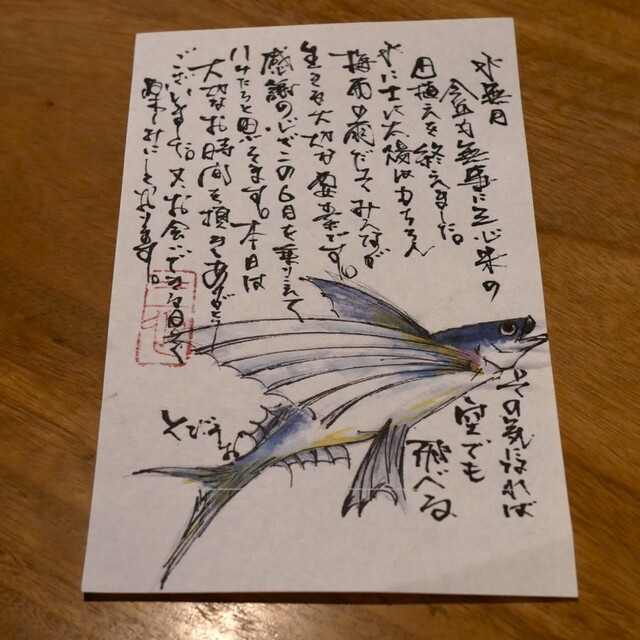 水無月
今年も無事に三心米の
田植えを終えました。
水に土に太陽はもちろん
梅雨の雨だってみんなが
生きる大切な要素です。
感謝の心でこの6月を乗りこえて
いけたらと思います。本日は
大切なお時間を頂きありがとう
ございました。又、お会いできる日を
楽しみにしております。
その気になれば
空でも
飛べる
とびうお